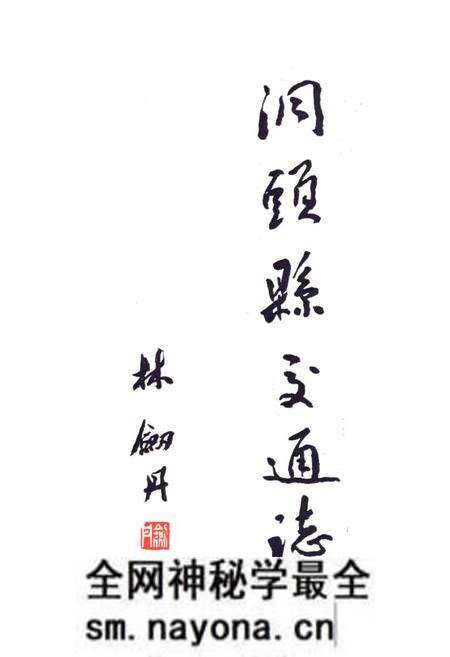 洞頭縣交通誌
林劍丹
全网神秘学最全
sm.nayona.cn